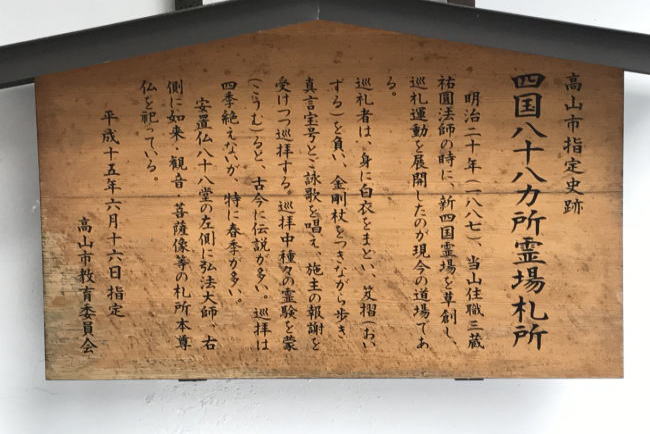 高山市指定史跡
四国八十八カ所霊場札所
明治二十年(一八八七)、当山住職三蔵
祐圓法師の時に、新四国霊場を草創し、
巡礼運動を展開したのが現今の道場であ
る。
巡礼者は、身に白衣をまとい、笈摺(おい
ずる)を負い、金剛杖をつきながら歩き
真言宝号とご詠歌を唱え、施主の報謝を
受けつつ巡拝する。巡拝中種々の霊験を蒙
(こうむ)ると、古今に伝説が多い。巡拝は
四季絶えないが、特に春季が多い。
安置仏八十八堂の左側に弘法大師、右
側に如来・観音 菩薩像等の札所本尊
仏を祀っている。
平成十五年六月十六日 指定
高山市教育委員会